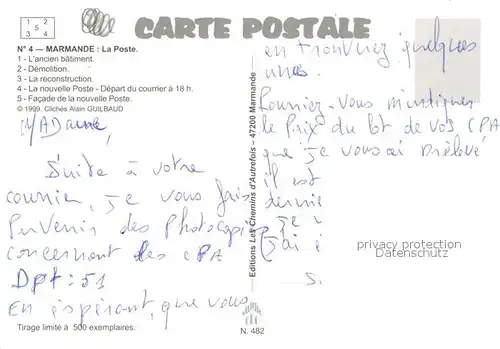 1 2
5
3 4
CARTE POSTALE
N° 4 — MARMANDE : La Poste.
1 - L'ancien bâtiment.
2 - Démolition.
3 - La reconstruction.
4 - La nouvelle Poste - Départ du courrier à 18 h.
5 - Façade de la nouvelle Poste.
© 1999. Clichés Alain GUILBAUD
MADame,
Suite à votre
courrier, je vous fais
Parvenir des Photocopies
concernant les CPA
Dpt : 51
En espérant, que vous
Tirage limité à 500 exemplaires.
Editions Les Chemins d'Autrefois - 47200 Marmande
en trouverez quelques
unes.
Pourriez-vous m'indiquer
le Prix du lot de vos CPA
que je vous ai prélevé
il est
dernie
je
j'ai
S.
privacy protection
Datenschutz
N. 482